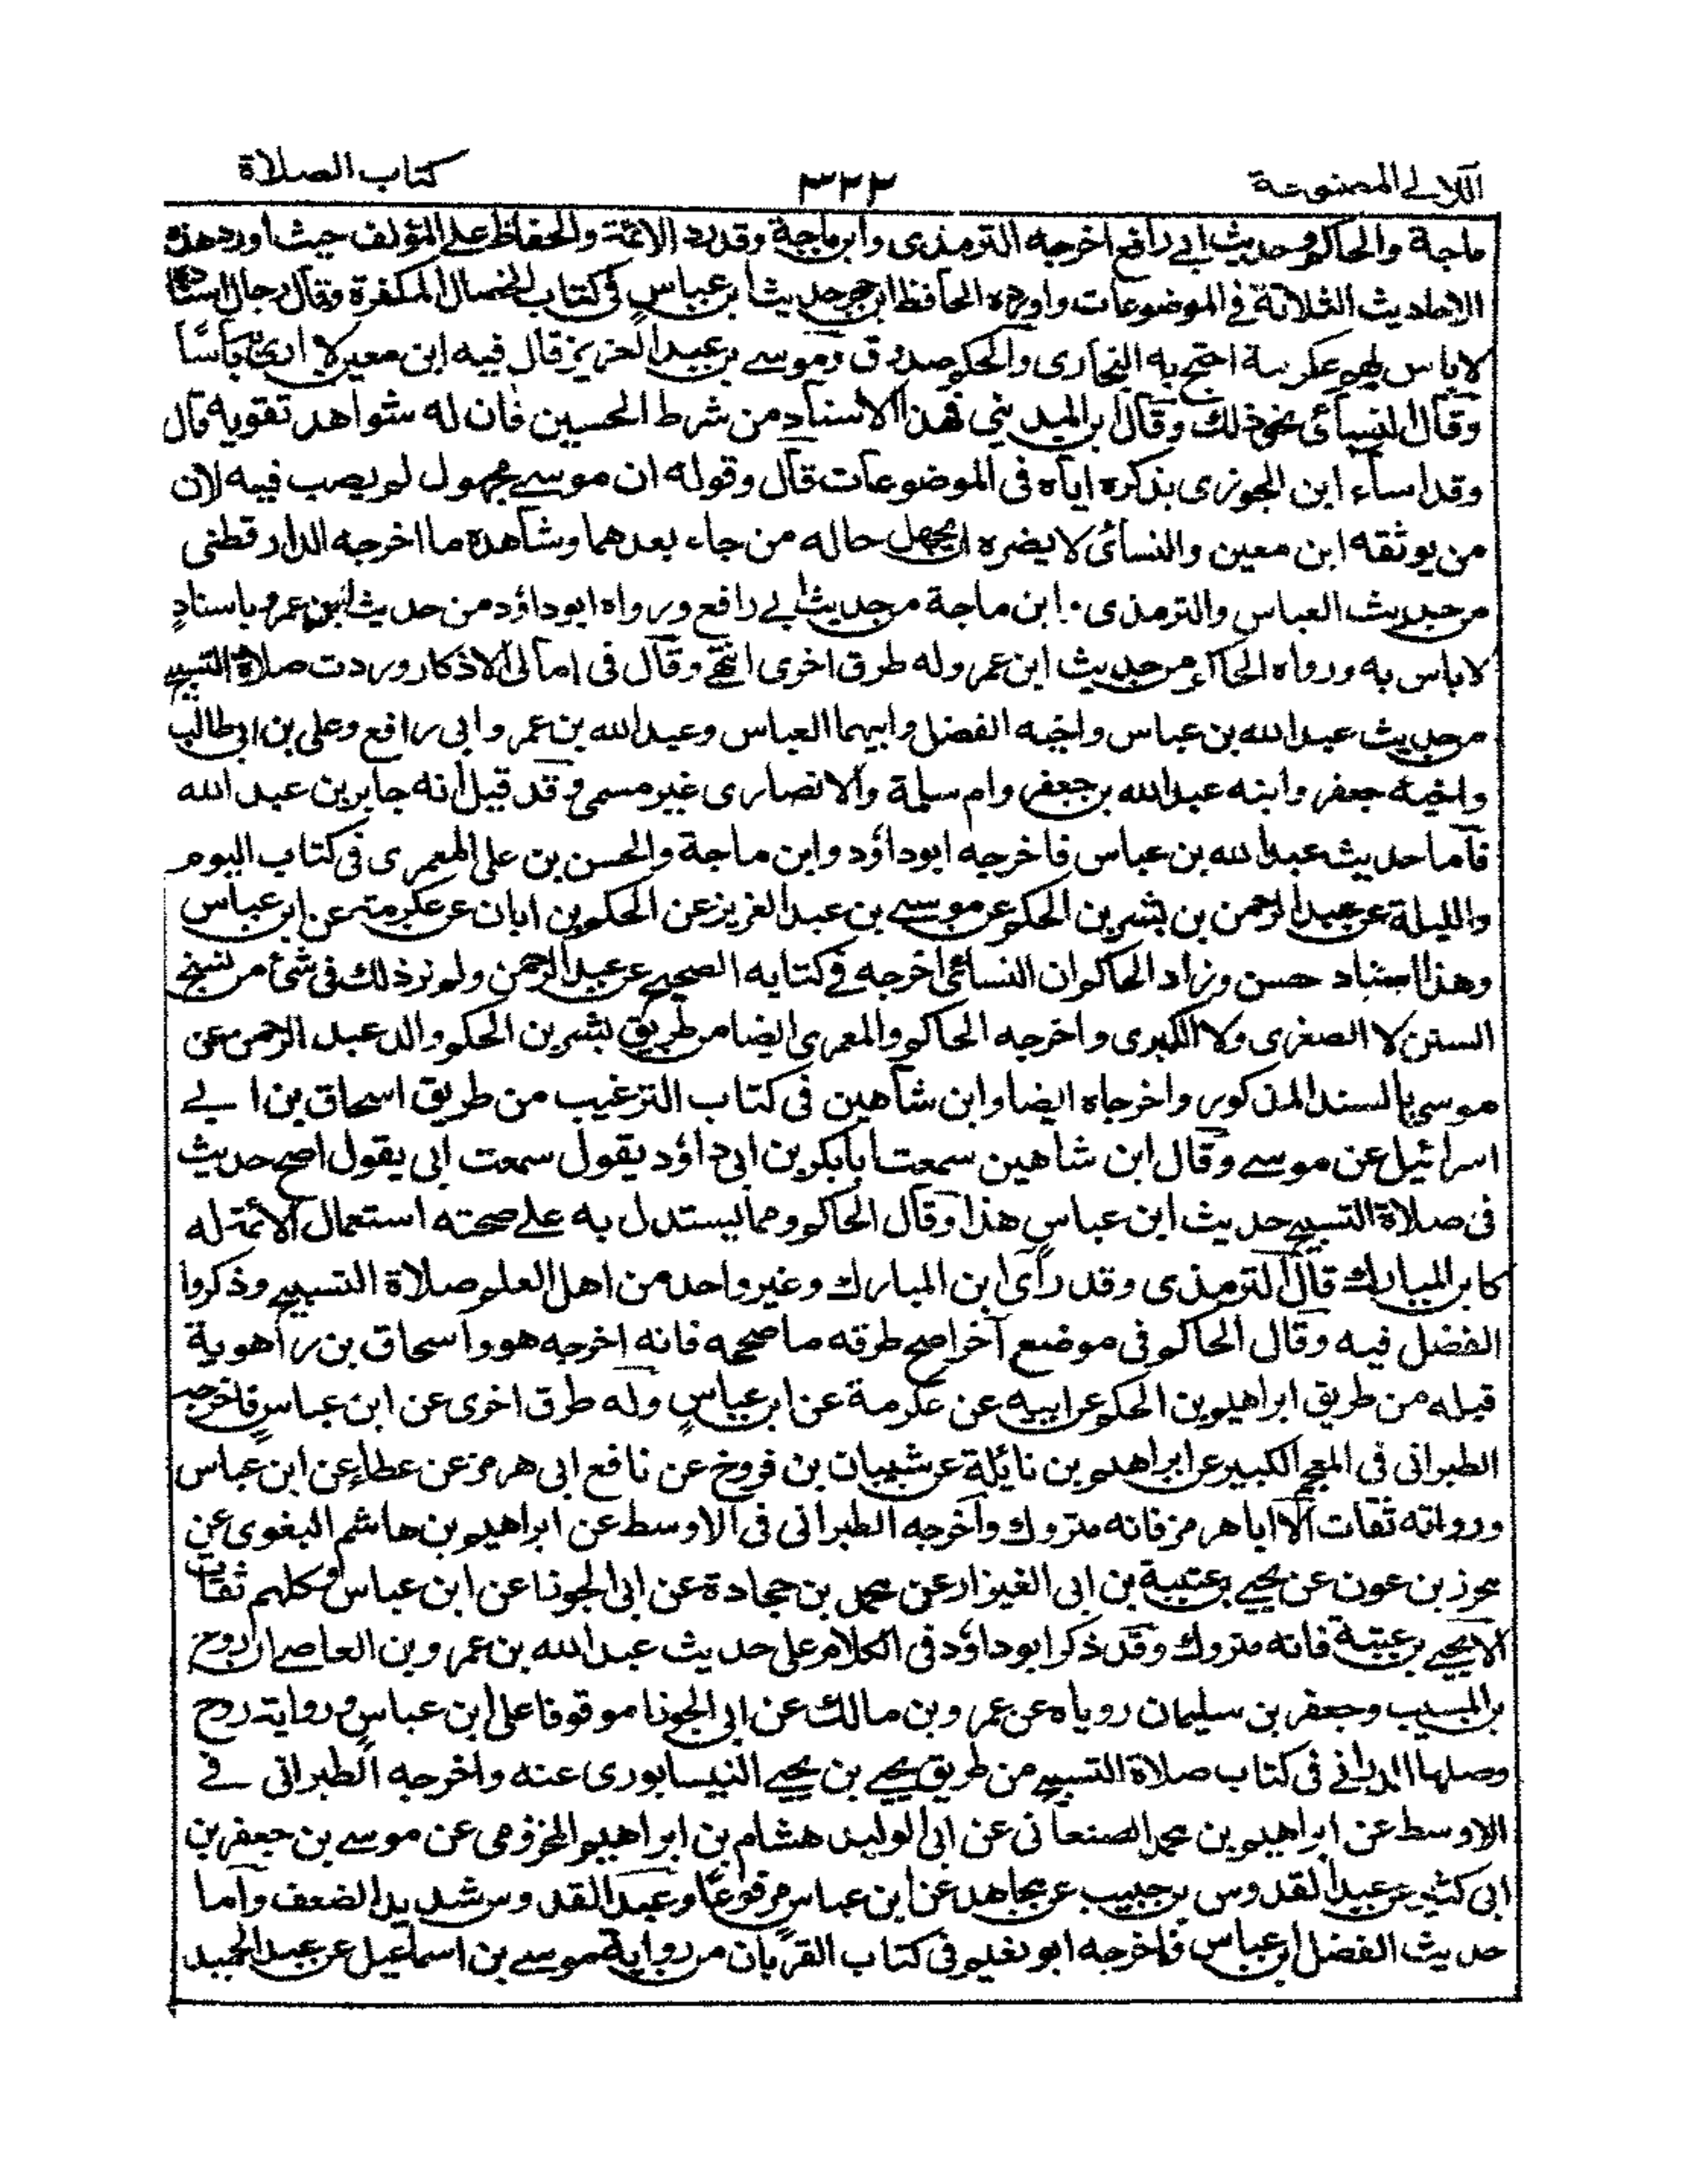 اللآلى المصنوعة ٣٢٢ كتاب الصلاة
ماجة والحاكم وحديث ابى رافع اخرجه الترمذى وابن ماجة وقد رد الائمة والحفاظ على المؤلف حيث اورد هذه
الاحاديث الثلاثة فى الموضوعات واورد الحافظ ابن حجر حديث ابن عباس فى كتاب الخصال المكفرة وقال رجال اسناده
لا باس بهم عكرمة احتج به البخارى والحكم صدوق وموسى بن عبد العزيز قال فيه ابن معين لا ارى به باسًا
وقال النسائى نحو ذلك وقال ابن المدينى فهذا الاسناد من شرط الحسين فان له شواهد تقويه قال
وقد اساء ابن الجوزى بذكره اياه فى الموضوعات قال وقوله ان موسى مجهول لم يصب فيه لان
من يوثقه ابن معين والنسائى لا يضره ان يجهل حاله من جاء بعدهما وشاهده ما اخرجه الدارقطنى
من حديث العباس والترمذى وابن ماجة من حديث ابى رافع ورواه ابو داؤد من حديث ابن عمرو باسنادٍ
لا باس به ورواه الحاكم من حديث ابن عمر وله طرق اخرى انتهى وقال فى امالى الاذكار وردت صلاة التسبيح
من حديث عبد الله بن عباس واخيه الفضل وابيهما العباس وعبد الله بن عمر وابى رافع وعلى بن ابى طالب
واخيه جعفر وابنه عبد الله بن جعفر وام سلمة والانصارى غير مسمى وقد قيل انه جابر بن عبد الله
فاما حديث عبد الله بن عباس فاخرجه ابو داؤد وابن ماجة والحسن بن على المعمرى فى كتاب اليوم
والليلة عن عبد الرحمن بن بشر بن الحكم عن موسى بن عبد العزيز عن الحكم بن ابان عن عكرمة عن ابن عباس
وهذا اسناد حسن وزاد الحاكم ان النسائى اخرجه فى كتابه الصحيح عن عبد الرحمن ولم نر ذلك فى شئ من نسخ
السنن لا الصغرى ولا الكبرى واخرجه الحاكم والمعمرى ايضا من طريق بشر بن الحكم والد عبد الرحمن عن
موسى بالسند المذكور واخرجاه ايضا وابن شاهين فى كتاب الترغيب من طريق اسحاق بن ابى
اسرائيل عن موسى وقال ابن شاهين سمعت ابا بكر بن ابى داؤد يقول سمعت ابى يقول اصح حديث
فى صلاة التسبيح حديث ابن عباس هذا وقال الحاكم ومما يستدل به على صحته استعمال الائمة له
كابن المبارك قال الترمذى وقد رأى ابن المبارك وغير واحد من اهل العلم صلاة التسبيح وذكروا
الفضل فيه وقال الحاكم فى موضع آخر اصح طرقه ما صححه فانه اخرجه هو واسحاق بن راهوية
قبله من طريق ابراهيم بن الحكم عن ابيه عن عكرمة عن ابن عباسٍ وله طرق اخرى عن ابن عباسٍ فاخرجه
الطبرانى فى المعجم الكبير عن ابراهيم بن نائلة عن شيبان بن فروخ عن نافع ابى هرمز عن عطاء عن ابن عباس
ورواته ثقات الا ابا هرمز فانه متروك واخرجه الطبرانى فى الاوسط عن ابراهيم بن هاشم البغوى عن
محرز بن عون عن يحيى بن عتبة بن ابى الغيزار عن محمد بن جحادة عن ابى الجوزا عن ابن عباس وكلهم ثقات
الا يحيى بن عتبة فانه متروك وقد ذكر ابو داؤد فى الكلام على حديث عبد الله بن عمرو بن العاص ان روح
بن المسيب وجعفر بن سليمان روياه عن عمرو بن مالك عن ابى الجوزا موقوفا على ابن عباسٍ ورواية روح
وصلها فى كتاب صلاة التسبيح من طريق يحيى بن يحيى النيسابورى عنه واخرجه الطبرانى فى
الاوسط عن ابراهيم بن محمد الصنعانى عن ابى الوليد هشام بن ابراهيم المخزومى عن موسى بن جعفر بن
ابى كثير عن عبد القدوس بن حبيب عن مجاهد عن ابن عباسٍ مرفوعًا وعبد القدوس شديد الضعف واما
حديث الفضل ابن عباس فاخرجه ابو نعيم فى كتاب القربان من رواية موسى بن اسماعيل عن عبد الحميد